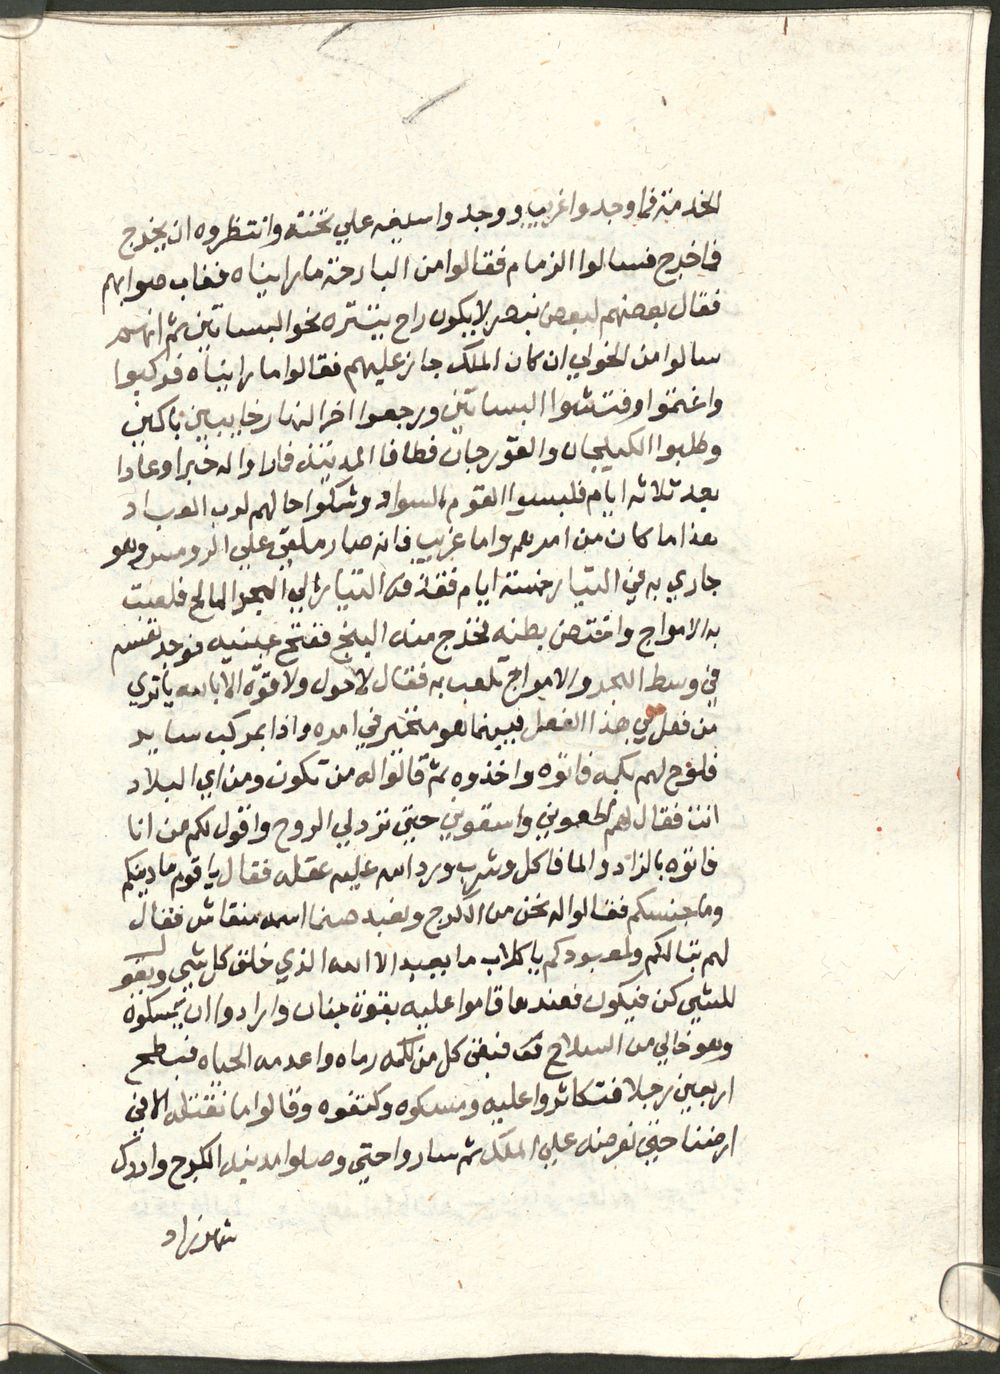 الخدمة فما وجدوا غريب ووجدوا سيفه علي تخته وانتظروه ان يخرج
فما خرج فسالوا الزمام فقالوا من البارحة ما رايناه فغاب صوابهم
فقال بعضهم لبعض نبصر لا يكون راح يتنزه نحو البساتين ثم انهم
سالوا من الخولي ان كان الملك جاز عليهم فقالوا ما رايناه فركبوا
واغتموا وفتشوا البساتين ورجعوا اخر النهار خايبين باكين
وطلبوا الكيلجان والقورجان فطافا المدينة فما راوا له خبرا وعادا
بعد ثلاثة ايام فلبسوا القوم السواد وشكوا حالهم لرب العباد
هذا ما كان من امرهم واما غريب فانه صار ملقي علي الرومس وهو
جاري به في التيار خمسة ايام فقذفه التيار الي البحر المالح فلعبت
به الامواج واختض بطنه فخرج منه البنج ففتح عينيه فوجد نفسه
في وسط البحر والامواج تلعب به فقال لا حول ولا قوة الا بالله يا تري
من فعل بي هذا الفعل فبينما هو متحير في امره واذا بمركب ساير
فلوح لهم بكمه فاتوه واخذوه ثم قالوا له من تكون ومن اي البلاد
انت فقال لهم اطعموني واسقوني حتي ترد لي الروح واقول لكم من انا
فاتوه بالزاد والما فاكل وشرب ورد الله عليه عقله فقال يا قوم ما دينكم
وما جنسكم فقالوا له نحن من الكرج ونعبد صنما اسمه منقاش فقال
لهم تبا لكم ولمعبودكم يا كلاب ما يعبد الا الله الذي خلق كل شي ويقول
للشي كن فيكون فعندها قاموا عليه بقوة جنان وارادوا ان يمسكوه
وهو خالي من السلاح فبقي كل من لكمه رماه واعدمه الحياه فبطح
اربعين رجلا فتكاثروا عليه ومسكوه وكتفوه وقالوا ما نقتله الا في
ارضنا حتي نعرضه علي الملك ثم ساروا حتي وصلوا مدينة الكرج وادرك
شهرزاد